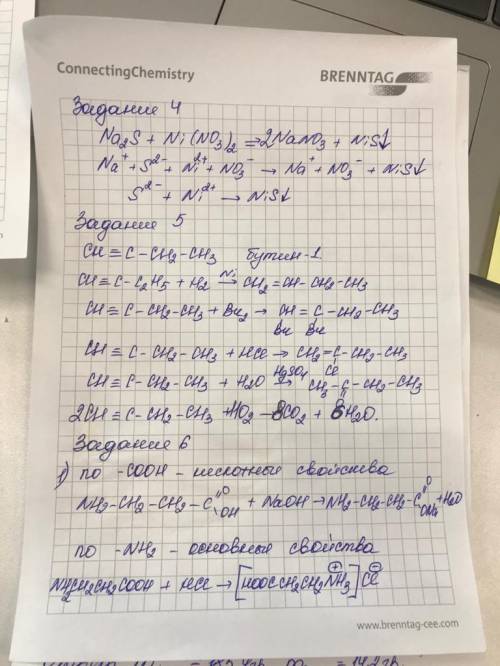 ConnectingChemistry BRENNTAG
Задание 4
Na₂S + Ni(NO₃)₂ → 2NaNO₃ + NiS↓
Na⁺ + S²⁻ + Ni²⁺ + NO₃⁻ → Na⁺ + NO₃⁻ + NiS↓
S²⁻ + Ni²⁺ → NiS↓
Задание 5
CH ≡ C – CH₂ – CH₃ бутин-1
CH ≡ C – C₂H₅ + H₂ Ni→ CH₂ = CH – CH₂ – CH₃
CH ≡ C – CH₂ – CH₃ + Br₂ → CH = C – CH₂ – CH₃
Br Br
CH ≡ C – CH₂ – CH₃ + HCl → CH₂ = C – CH₂ – CH₃
Cl
CH ≡ C – CH₂ – CH₃ + H₂O H₂SO₄→ CH₃ – C – CH₂ – CH₃
O
2CH ≡ C – CH₂ – CH₃ + 11O₂ → 8CO₂ + 6H₂O.
Задание 6
1) по -COOH – кислотные свойства
NH₂ – CH₂ – CH₂ – C = O OH + NaOH → NH₂ – CH₂ – CH₂ – C = O ONa + H₂O
по -NH₂ – основные свойства
NH₂CH₂CH₂COOH + HCl → [HOOCCH₂CH₂NH₃]⊕ Cl⊖
www.brenntag-cee.com